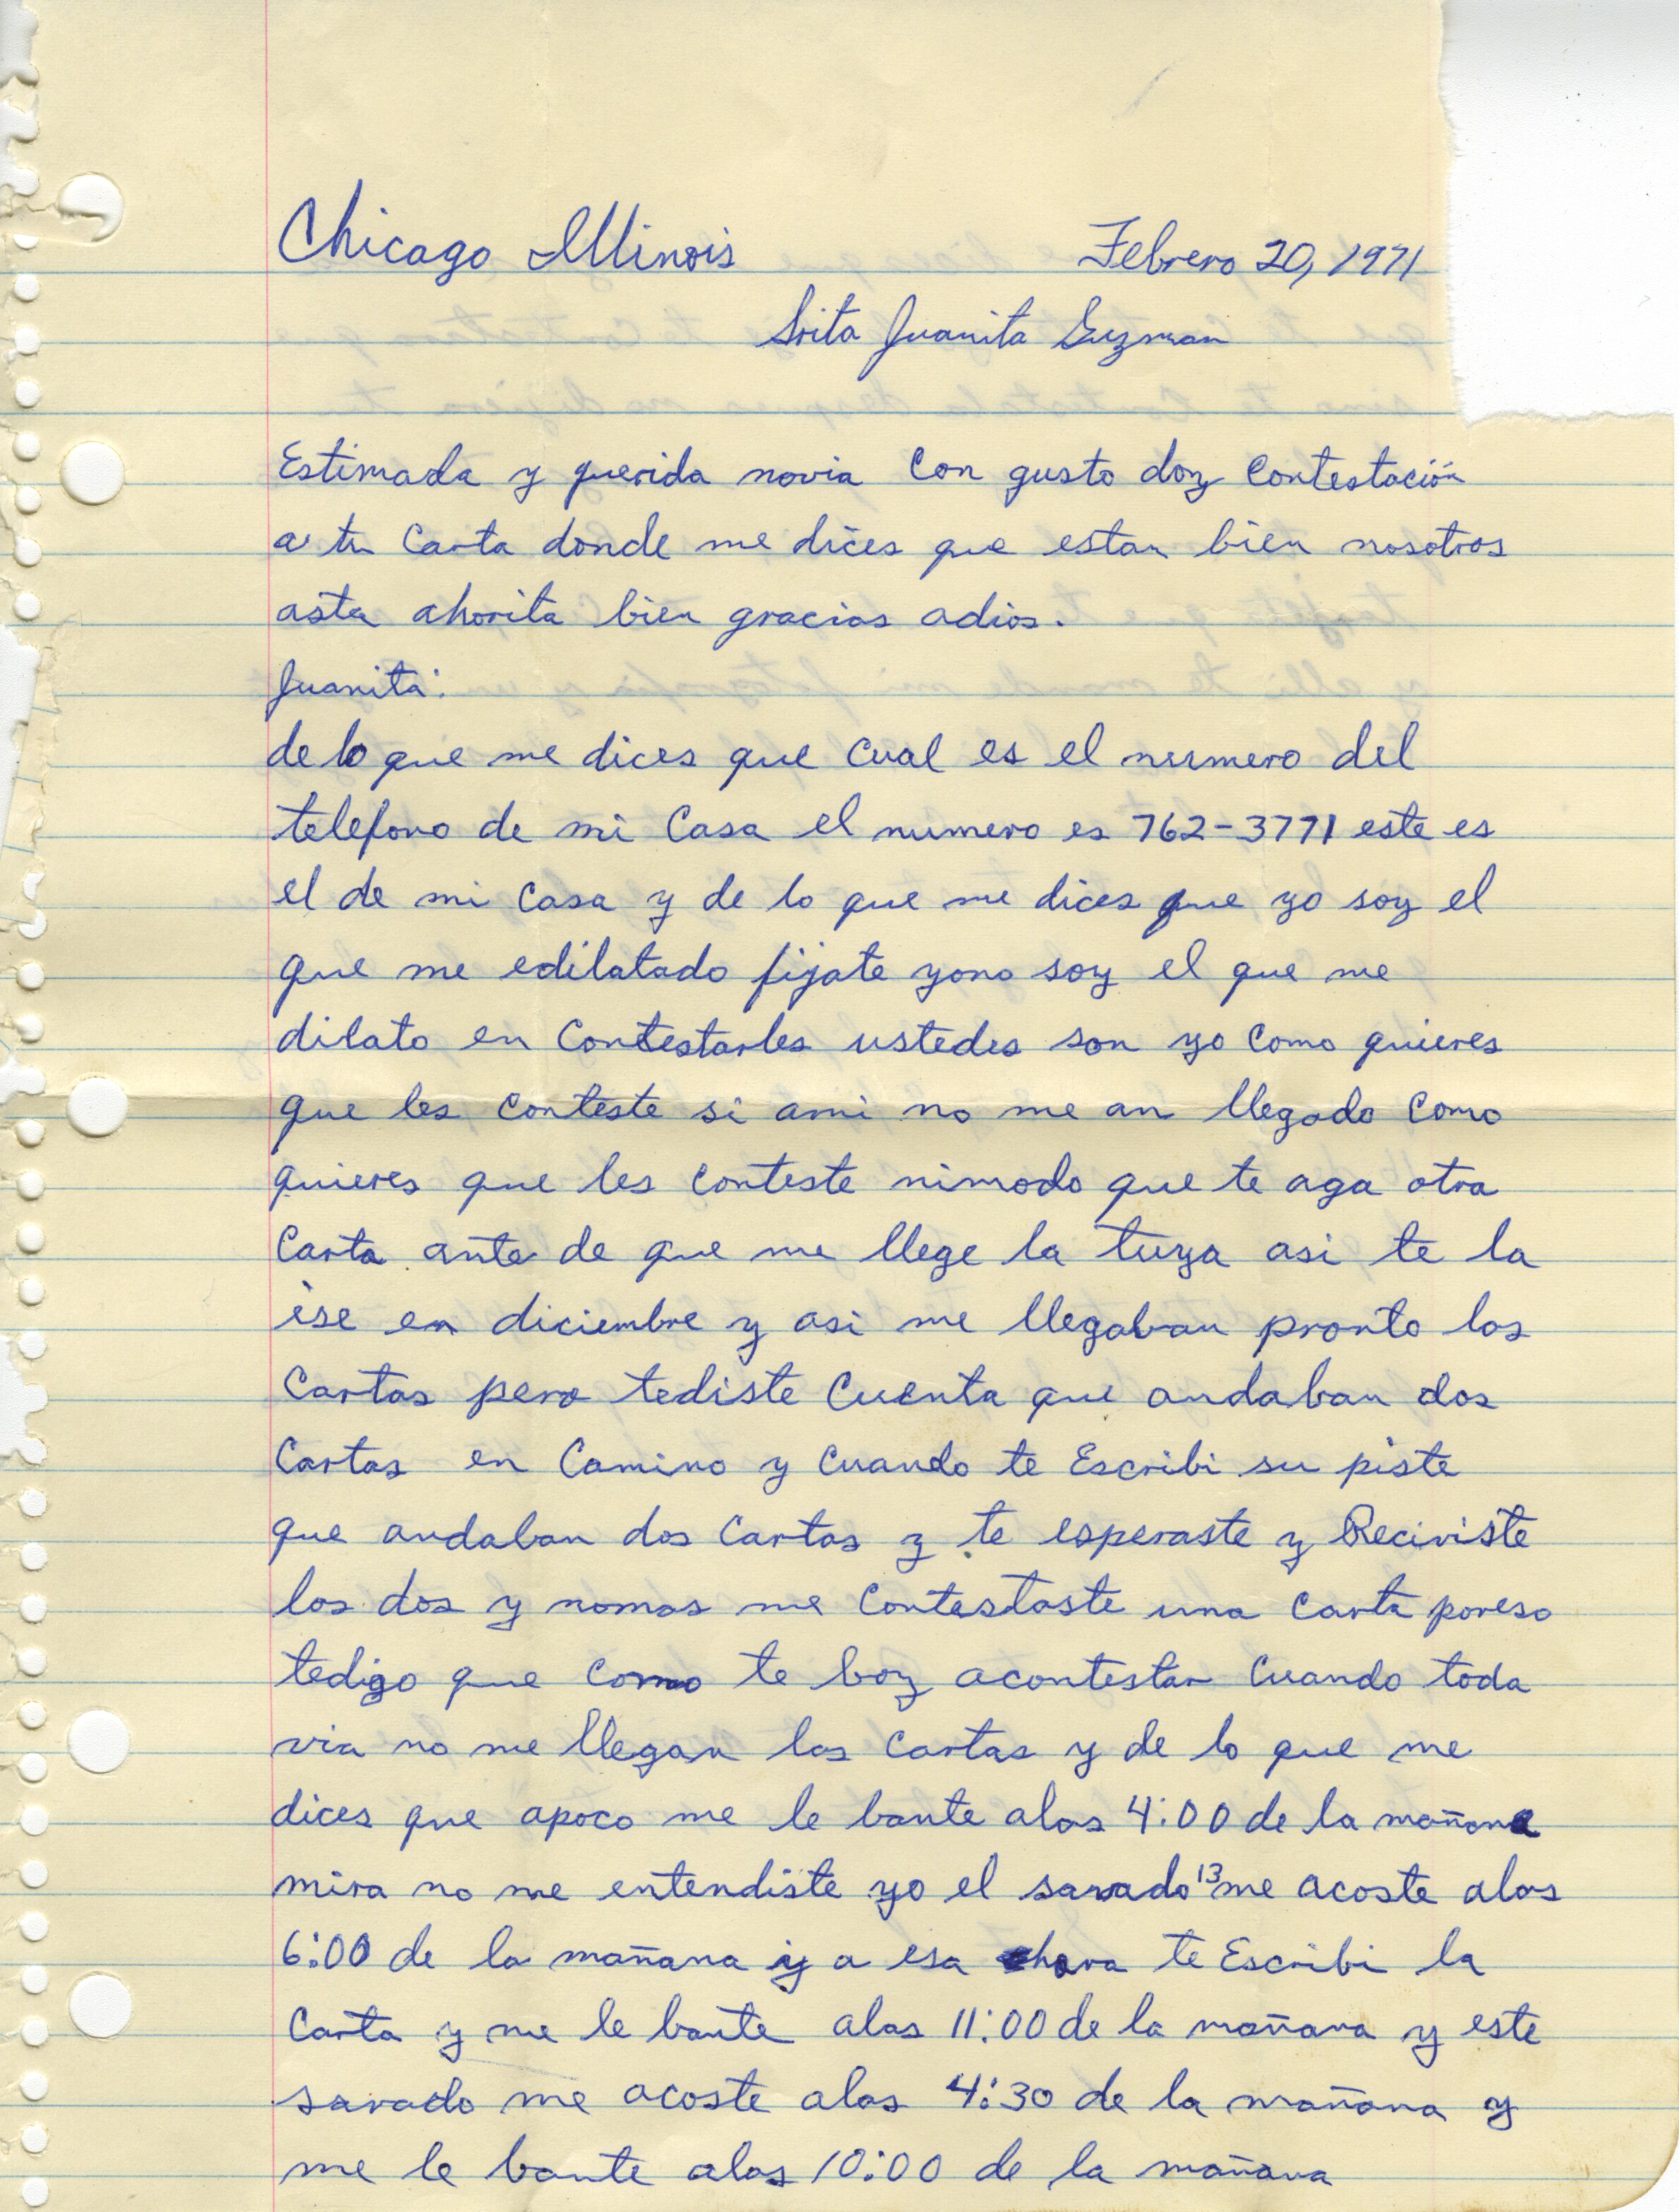 Chicago Illinois Febrero 20, 1971
Srita Juanita Guzman
Estimada y querida novia con gusto doy contestación
a tu carta donde me dices que estan bien nosotros
asta ahorita bien gracias adios.
Juanita:
de lo que me dices que cual es el numero del
telefono de mi casa el numero es 762-3771 este es
el de mi casa y de lo que me dices que yo soy el
que me edilatado fijate yono soy el que me
dilato en contestarles ustedes son yo como quieres
que les conteste si ami no me an llegado como
quieres que les conteste nimodo que te aga otra
carta ante de que me llege la tuya asi te la
ise en diciembre y asi me llegaban pronto las
cartas pero tediste cuenta que andaban dos
cartas en camino y cuando te Escribi su piste
que andaban dos cartas y te esperaste y Reciviste
las dos y nomas me contestaste una carta poreso
tedigo que como te boy acontestar cuando toda
via no me llegan las cartas y de lo que me
dices que apoco me le bante alas 4:00 de la mañana
mira no me entendiste yo el savado 13 me acoste alas
6:00 de la mañana y a esa hora te Escribi la
carta y me le bante alas 11:00 de la mañana y este
savado me acoste alas 4:30 de la mañana y
me le bante alas 10:00 de la mañana